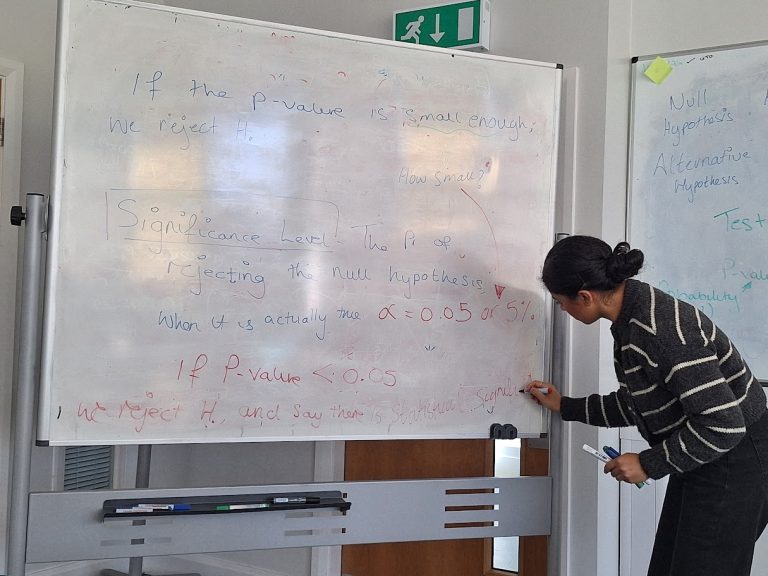 If the P-value is small enough,
we reject H.
How small?
Significance Level - The Pr of
rejecting the null hypothesis
when it is actually true α = 0.05 or 5%.
If P-value < 0.05
we reject H, and say there is statistical signific
Null
Hypothesis
Alternative
Hypothesis
Test
P-val
Probability